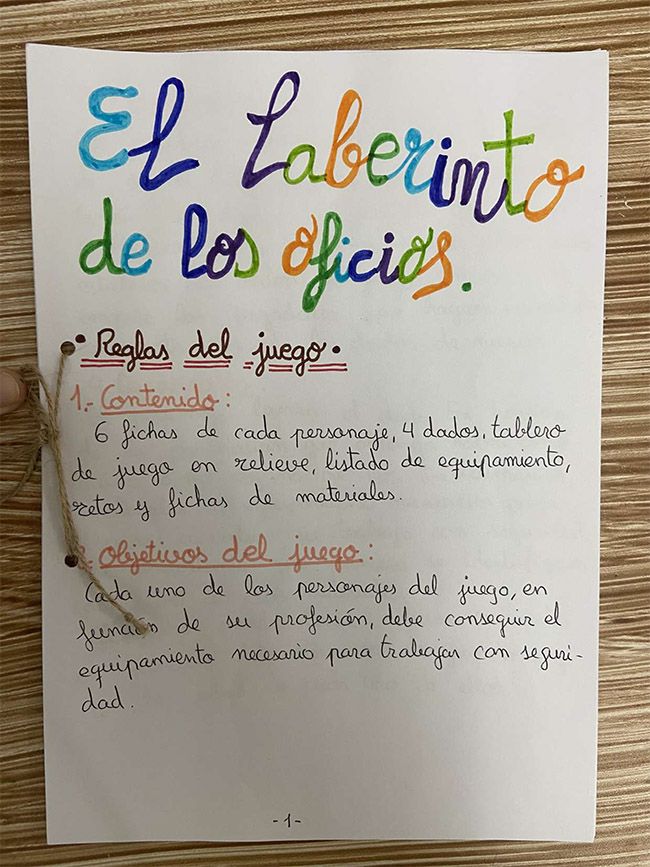 El Laberinto
de los oficios.
• Reglas del juego •
1.- Contenido:
6 fichas de cada personaje, 4 dados, tablero
de juego en relieve, listado de equipamiento,
retos y fichas de materiales.
Objetivos del juego:
Cada uno de los personajes del juego, en
función de su profesión, debe conseguir el
equipamiento necesario para trabajar con seguri-
dad.
-1-